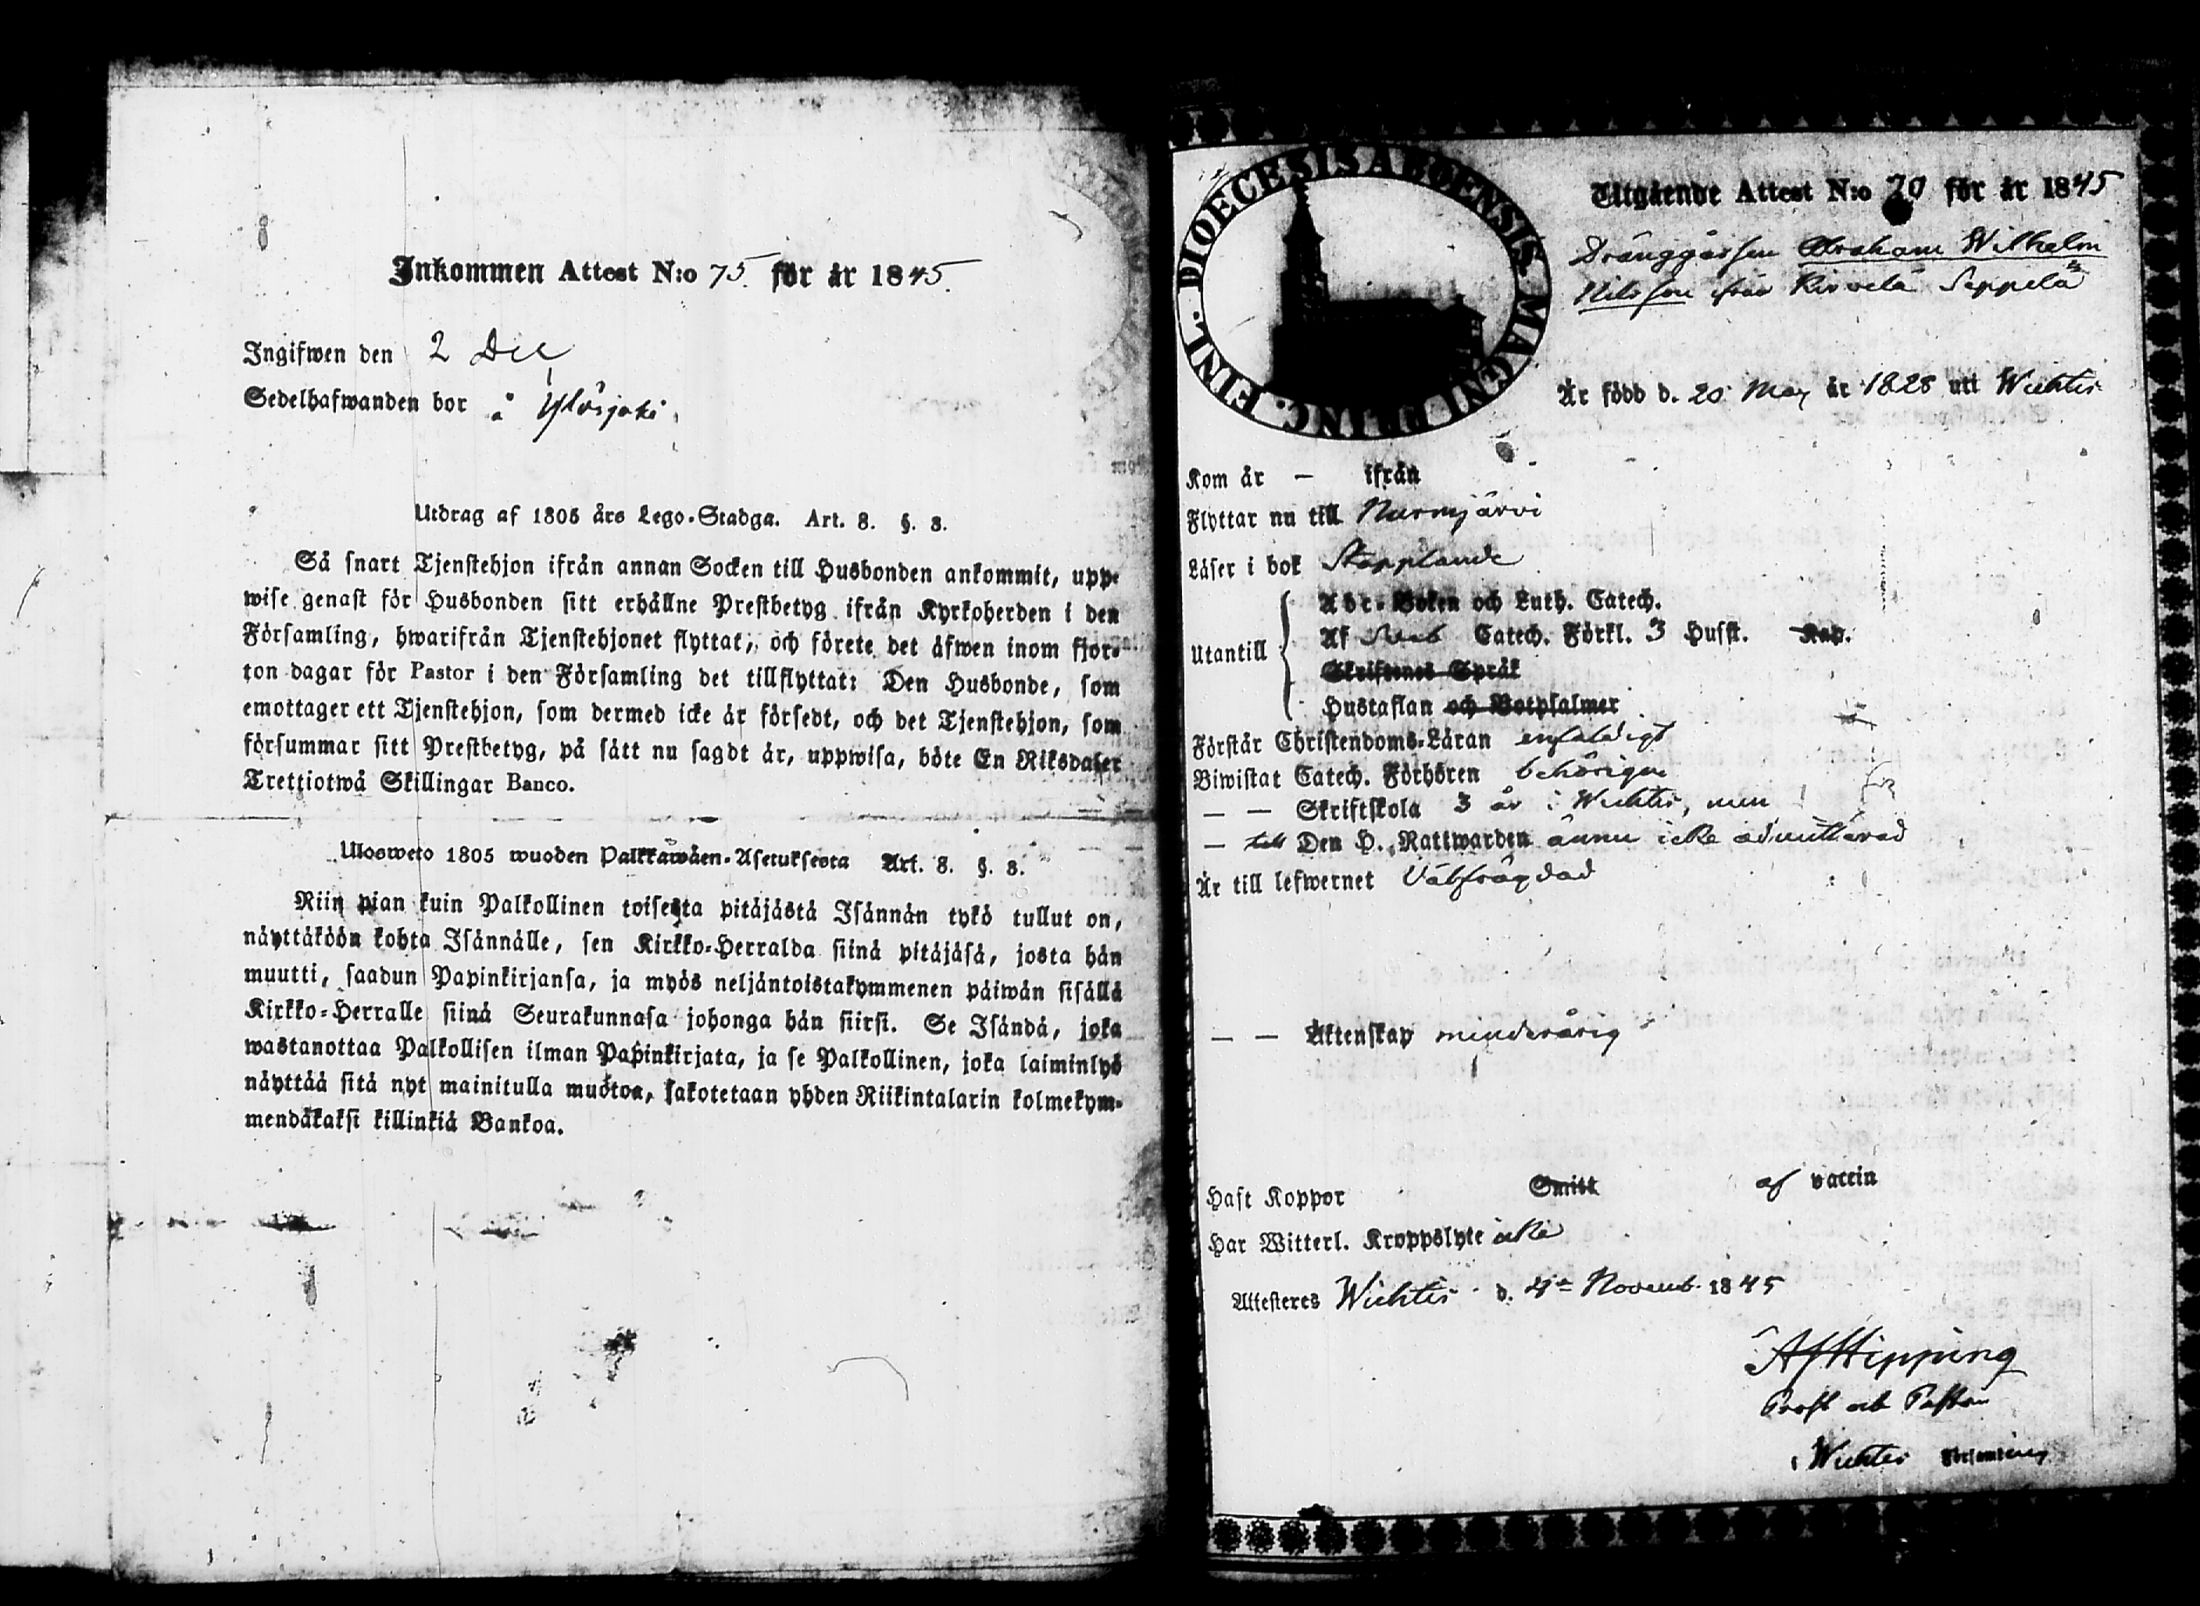 Inkommen Attest N:o 75. för år 1845.
Ingifwen den 2 Dec
Sedelhafwanden bor å Ylösjoki
Utdrag af 1805 års Lego-Stadga. Art. 8. §. 8.
Så snart Tjenstehjon ifrån annan Socken till Husbonden ankommit, upp-
wise genast för Husbonden sitt erhållne Prestbetyg ifrån Kyrkoherden i den
Församling, hwarifrån Tjenstehjonet flyttat, och förete det äfwen inom fjor-
ton dagar för Pastor i den Församling det tillflyttat: Den Husbonde, som
emottager ett Tjenstehjon, som dermed icke är försedt, och det Tjenstehjon, som
försummar sitt Prestbetyg, på sätt nu sagdt är, uppwisa, böte En Riksdaler
Trettiotwå Skillingar Banco.
Ulosweto 1805 wuoden Palkkawäen-Asetuksesta Art. 8. §. 8.
Niin pian kuin Palkollinen toisesta pitäjästä Isännän tykö tullut on,
näyttäköön kohta Isännälle, sen Kirkko-Herralda siinä pitäjäsä, josta hän
muutti, saadun Papinkirjansa, ja myös neljäntoistakymmenen päiwän sisällä
Kirkko-Herralle siinä Seurakunnasa johonga hän siirsi. Se Isändä, joka
wastanottaa Palkollisen ilman Papinkirjata, ja se Palkollinen, joka laiminlyö
näyttää sitä nyt mainitulla muotoa, sakotetaan yhden Riikintalarin kolmekym-
mendäkaksi killinkiä Bankoa.
DIOECESIS ABOENSIS. MAGNI DUC. FINL.
Utgående Attest N:o 70 för år 1845
Dränggåssen Abraham Wilhelm
Nilsson från Kirvelä Seppelä
Är född d. 20 May år 1828 uti Wichtis
Kom år — ifrån
Flyttar nu till Nurmjärvi
Läser i bok Stapplande
Utantill
Abc-Boken och Luth. Catech.
Af Sveb Catech. Förkl. 3 Husst. Kap.
Skriftenes Språk
Hustaflan och Botpsalmer
Förstår Christendoms-Läran enfaldigt
Biwistat Catech. Förhören behörigen
— — Skriftskola 3 år i Wichtis, men
— till Den H. Nattwarden ännu icke admitterad
Är till lefwernet Välfrägdad
— — Äktenskap minderårig
Haft Koppor Smitt af vaccin
Har Witterl. Kroppslyte icke
Attesteres Wichtis d. 4de Novemb. 1845
AJHipping
Prost och Pastor
i Wichtis Församling